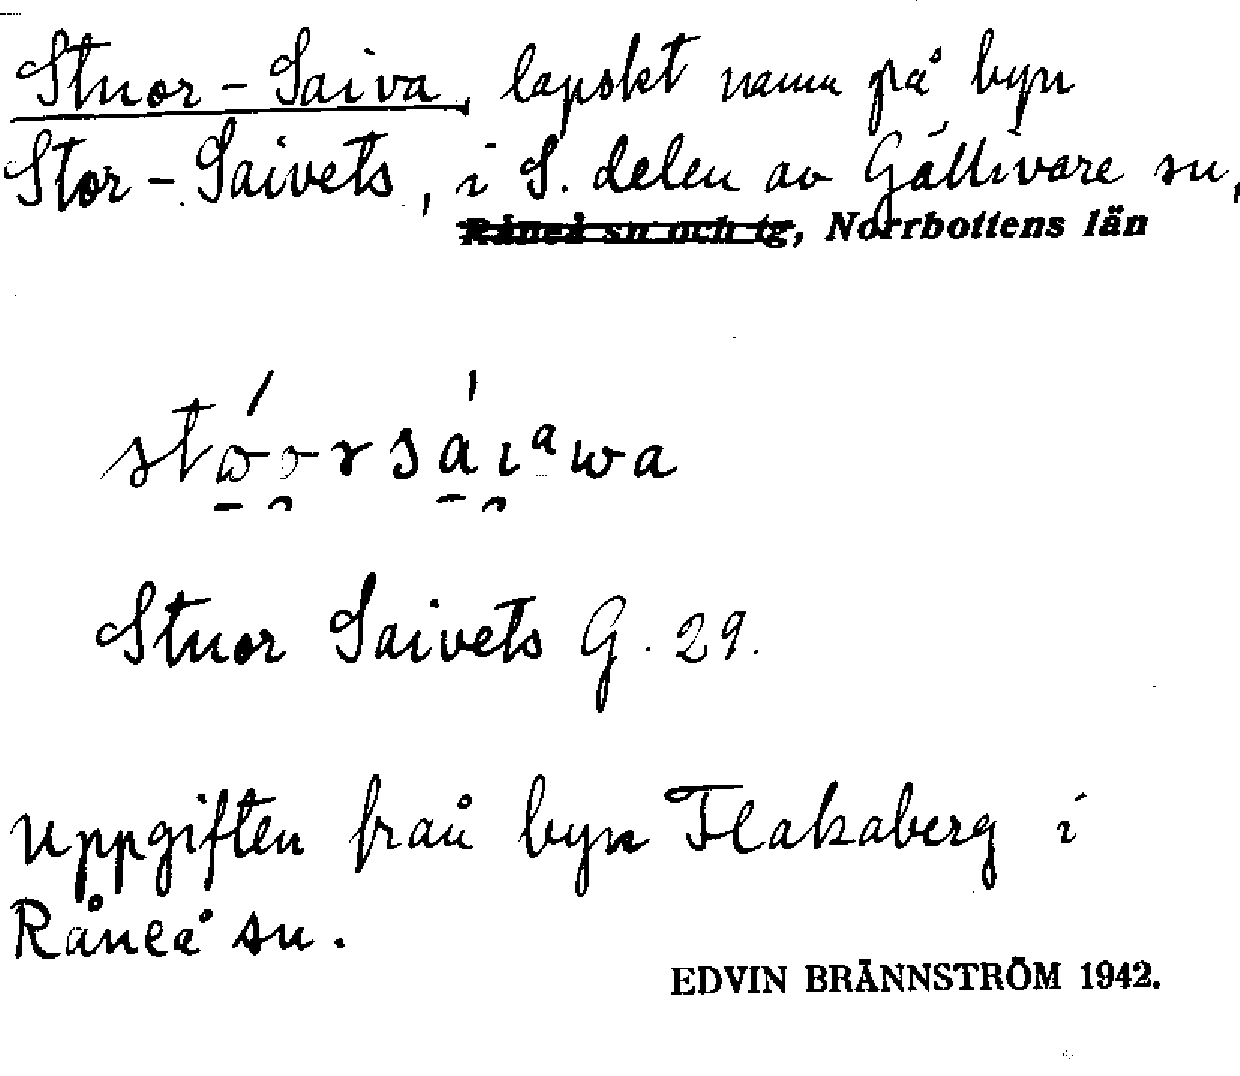 Stuor-Saiva, lapskt namn på byn
Stor-Saivets, i S. delen av Gällivare sn,
Råneå sn och tg, Norrbottens län
Stuor Saivets G. 29.
Uppgiften från byn Flakaberg i
Råneå sn.
EDVIN BRÄNNSTRÖM 1942.